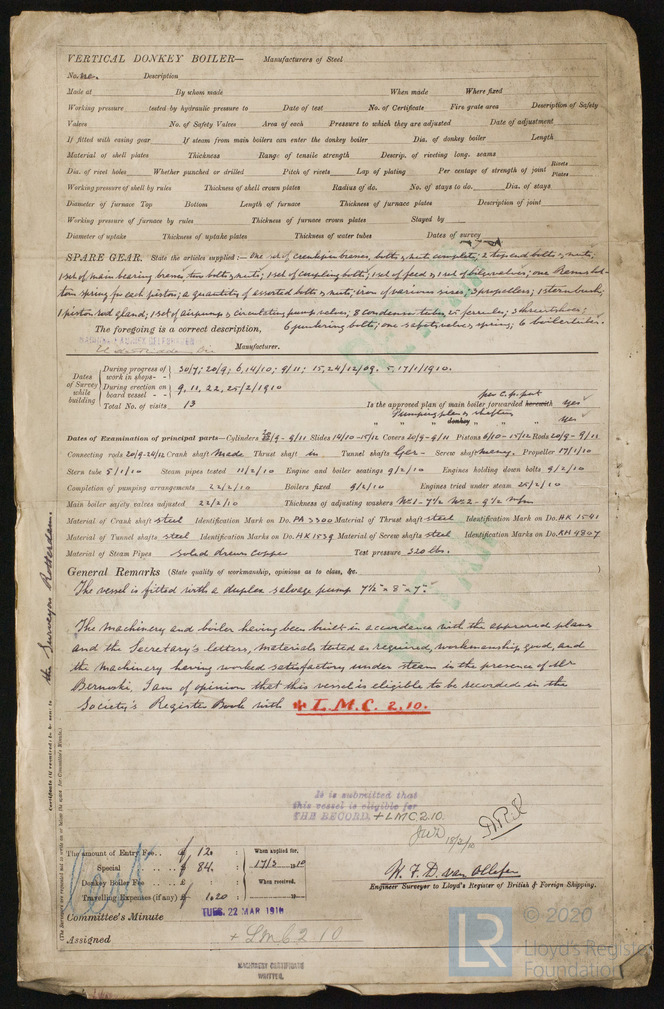 VERTICAL DONKEY BOILER— Manufacturers of Steel
No. ne. Description
Made at By whom made When made Where fixed
Working pressure tested by hydraulic pressure to Date of test No. of Certificate Fire grate area Description of Safety
Valves No. of Safety Valves Area of each Pressure to which they are adjusted Date of adjustment
If fitted with casing gear If steam from main boilers can enter the donkey boiler Dia. of donkey boiler Length
Material of shell plates Thickness Range of tensile strength Descrip. of riveting long. seams
Dia. of rivet holes Whether punched or drilled Pitch of rivets Lap of plating Per centage of strength of joint Rivets Plates
Working pressure of shell by rules Thickness of shell crown plates Radius of do. No. of stays to do. Dia. of stays
Diameter of furnace Top Bottom Length of furnace Thickness of furnace plates Description of joint
Working pressure of furnace by rules Thickness of furnace crown plates Stayed by
Diameter of uptake Thickness of uptake plates Thickness of water tubes Dates of survey
SPARE GEAR. State the articles supplied:— One set of crankpin brasses, bolts & nuts complete; 2 top end bolts & nuts;
1 set of main bearing brasses, two bolts & nuts; 1 set of coupling bolts; 1 set of feed & 1 set of bilge valves; one Ramsbot-
tom spring for each piston; a quantity of assorted bolts & nuts; iron of various sizes; 3 propellers; 1 stern bush;
1 piston rod gland; 1 set of airpump & circulating pump valves; 8 condenser tubes, 25 ferrules; 3 thrust shoes;
The foregoing is a correct description, 6 bolts; one safety valve spring; 6 boiler tubes.
Manufacturer.
Dates of Survey while building
During progress of work in shops - - 30/7; 20/9; 6, 14/10; 9/11; 15, 24/12/09. 5, 17/1/1910.
During erection on board vessel - - 9, 11, 22, 25/2/1910
Total No. of visits 13
Is the approved plan of main boiler forwarded herewith per c.p. post yes
Pumping plan & shafting " " " donkey " " " yes
Dates of Examination of principal parts—Cylinders 20/9 - 9/11 Slides 14/10 - 15/12 Covers 20/9 - 9/11 Pistons 6/10 - 15/12 Rods 20/9 - 9/11
Connecting rods 20/9 - 24/12 Crank shaft made Thrust shaft in Tunnel shafts Ger- Screw shaft many. Propeller 17/1/10
Stern tube 5/1/10 Steam pipes tested 11/2/10 Engine and boiler seatings 9/2/10 Engines holding down bolts 9/2/10
Completion of pumping arrangements 22/2/10 Boilers fixed 9/2/10 Engines tried under steam 25/2/10
Main boiler safety valves adjusted 22/2/10 Thickness of adjusting washers No 1 - 7½ No 2 - 9½ m/m
Material of Crank shaft steel Identification Mark on Do. PA 3300 Material of Thrust shaft steel Identification Mark on Do. HK 1541
Material of Tunnel shafts steel Identification Marks on Do. HK 1539 Material of Screw shafts steel Identification Marks on Do. KH 4807
Material of Steam Pipes solid drawn copper Test pressure 320 lbs.
General Remarks (State quality of workmanship, opinions as to class, &c.
The vessel is fitted with a duplex salvage pump 7½" x 8" x 7".
The machinery and boiler having been built in accordance with the approved plans
and the Secretary's letters, materials tested as required, workmanship good, and
the machinery having worked satisfactory under steam in the presence of Mr
Bernoski, I am of opinion that this vessel is eligible to be recorded in the
Society's Register Book with + L.M.C. 2.10.
It is submitted that
this vessel is eligible for
THE RECORD. + LMC 2.10.
The amount of Entry Fee.. £ 12 : : When applied for,
Special .. .. £ 84. : : 17/3 1910
Donkey Boiler Fee .. .. £ : : When received,
Travelling Expenses (if any) £ 1.20 :
W. F. D. van Ollefen
Engineer Surveyor to Lloyd's Register of British & Foreign Shipping.
Committee's Minute TUES. 22 MAR 1910
Assigned + LMC 2 10
MACHINERY CERTIFICATE
WRITTEN.
Certificate (if required) to be sent to the Surveyor Rotterdam.
© 2020
LR
Lloyd's Register
Foundation